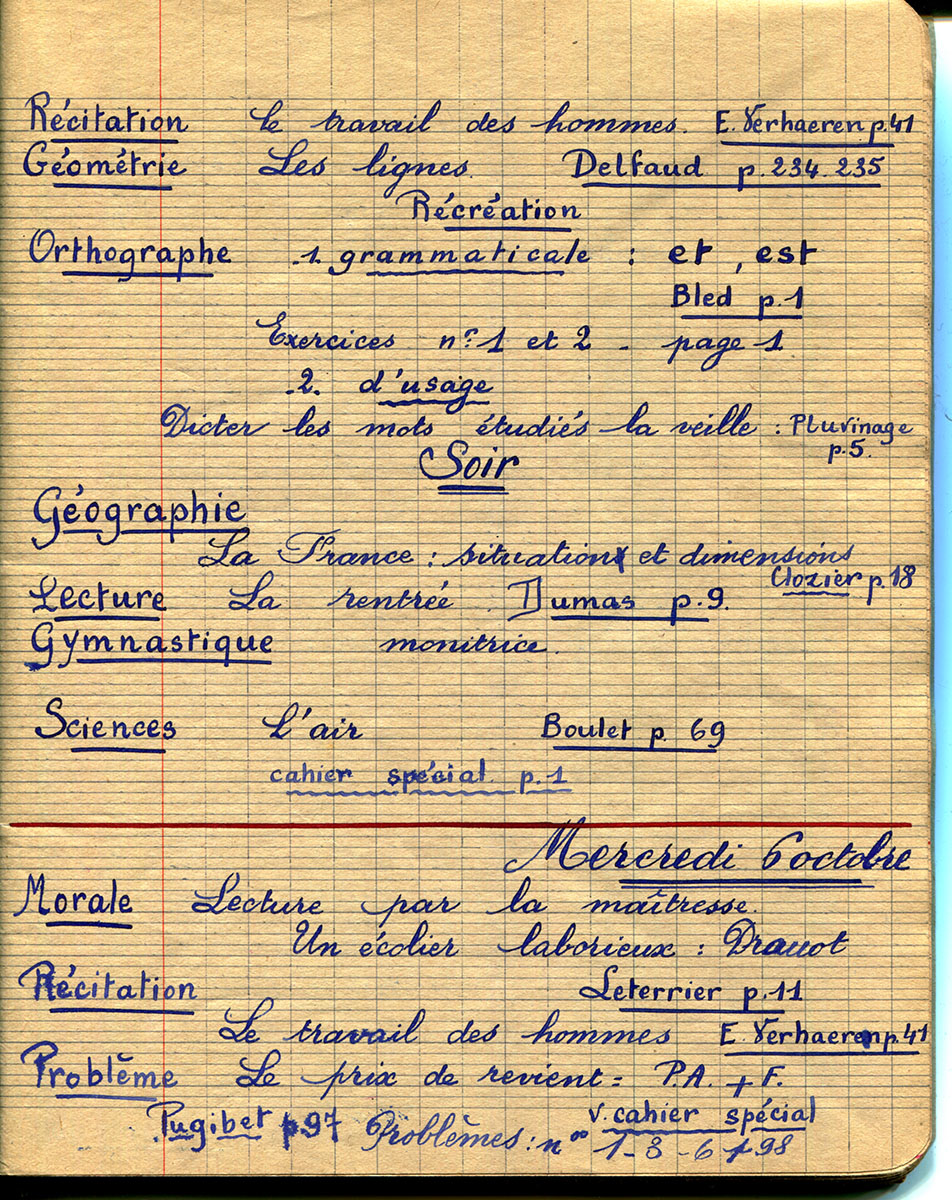 Récitation Le travail des hommes. E. Verhaeren p.41
Géométrie Les lignes. Delfaud p. 234. 235
Récréation
Orthographe .1. grammaticale : et, est
Bled p. 1
Exercices n° 1 et 2 - page 1
.2. d'usage
Dicter les mots étudiés la veille : Pluvinage
p.5.
Soir
Géographie
La France : situation et dimensions
Clozier p. 18
Lecture La rentrée . Dumas p. 9.
Gymnastique monitrice.
Sciences L'air Boulet p. 69
cahier spécial p. 1
Mercredi 6 octobre
Morale Lecture par la maîtresse.
Un écolier laborieux : Drouot
Récitation Leterrier p. 11
Le travail des hommes E. Verhaeren p. 41
Problème Le prix de revient = P.A. + F.
v. cahier spécial
Pugibet p97 Problèmes : nos 1 - 3 - 6 p 98